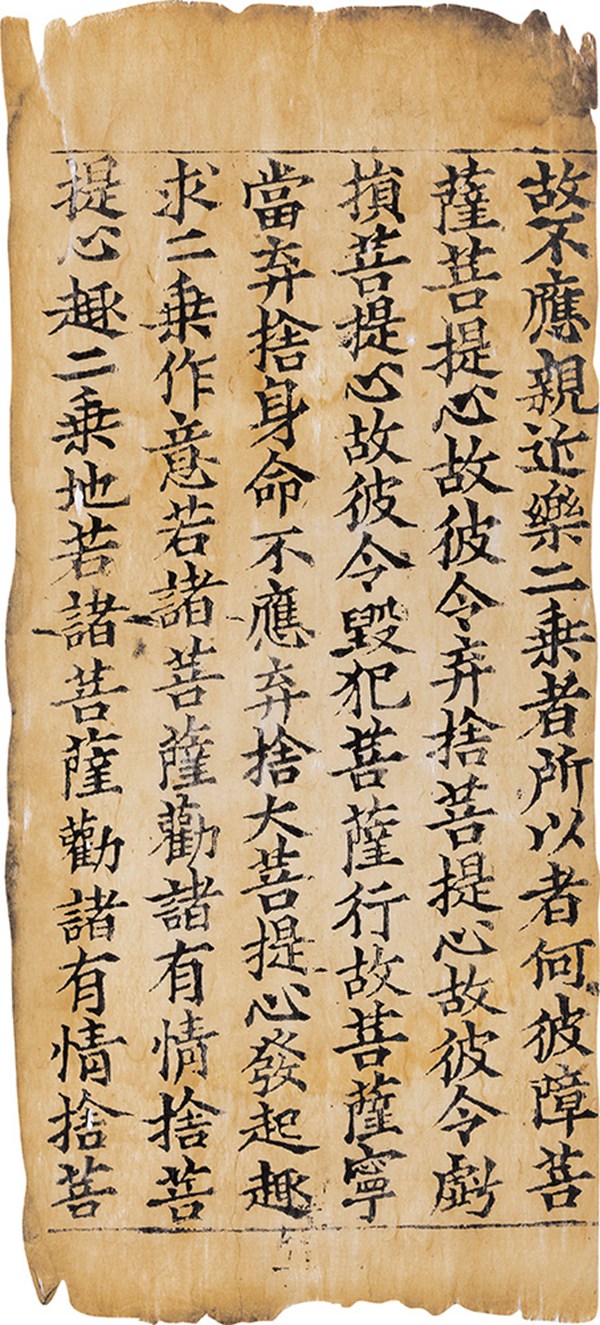 故不應親近樂二乗者所以者何彼障菩
薩菩提心故彼令弃捨菩提心故彼令虧
損菩提心故彼令毀犯菩薩行故菩薩寧
當弃捨身命不應弃捨大菩提心發起趣
求二乗作意若諸菩薩勸諸有情捨菩
提心趣二乗地若諸菩薩勸諸有情捨菩